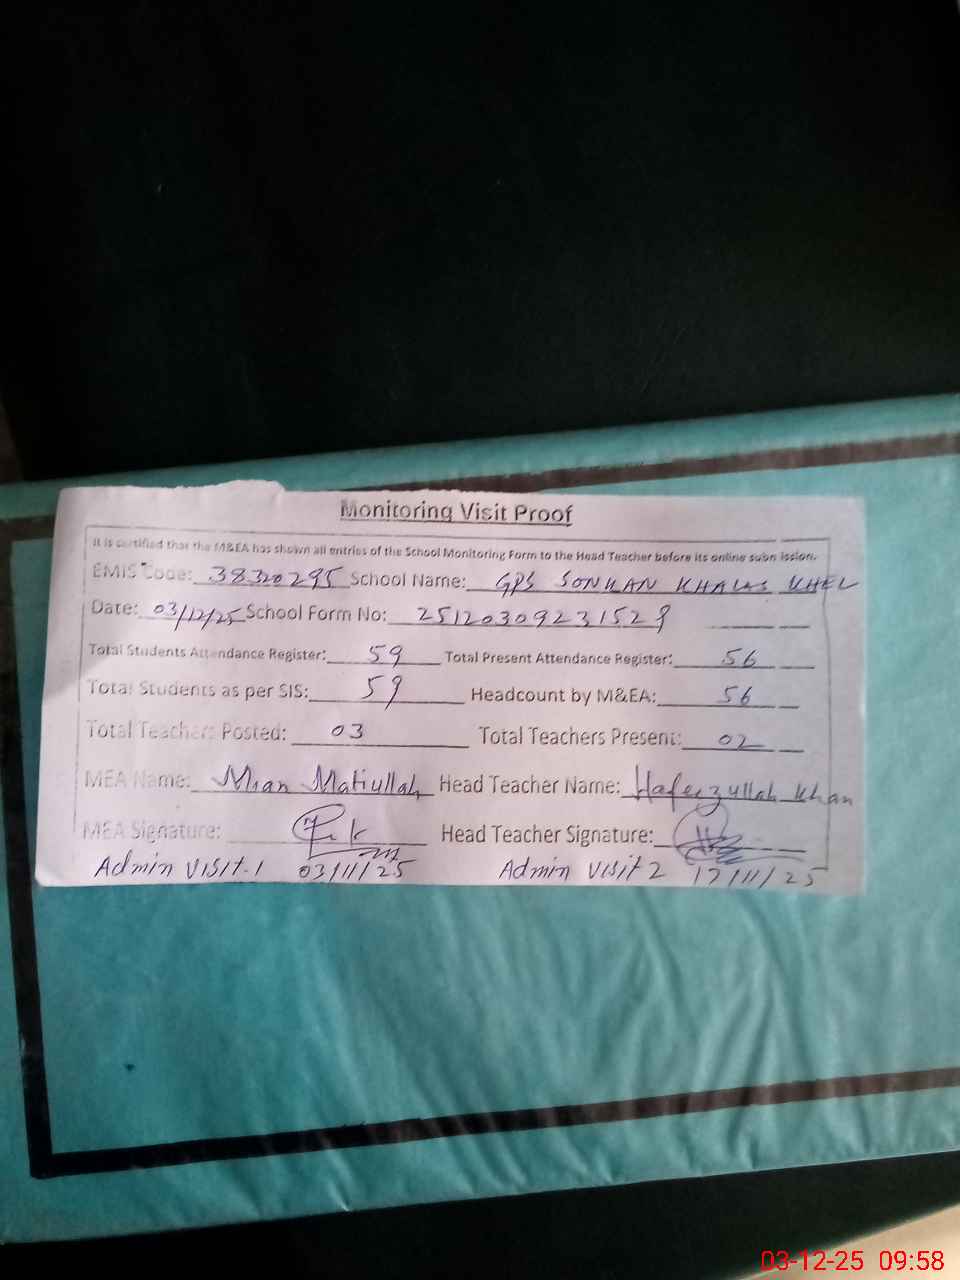 Monitoring Visit Proof
It is certified that the M&EA has shown all entries of the School Monitoring Form to the Head Teacher before its online submission.
EMIS Code: 38320295 School Name: GPS SONKAN KHALAS KHEL
Date: 03/12/25 School Form No: 25120309231529
Total Students Attendance Register: 59 Total Present Attendance Register: 56
Total Students as per SIS: 59 Headcount by M&EA: 56
Total Teachers Posted: 03 Total Teachers Present: 02
MEA Name: Khan Matiullah Head Teacher Name: Hafeezullah Khan
MEA Signature: Head Teacher Signature:
Admin visit 1 03/11/25 Admin visit 2 17/11/25
03-12-25 09:58